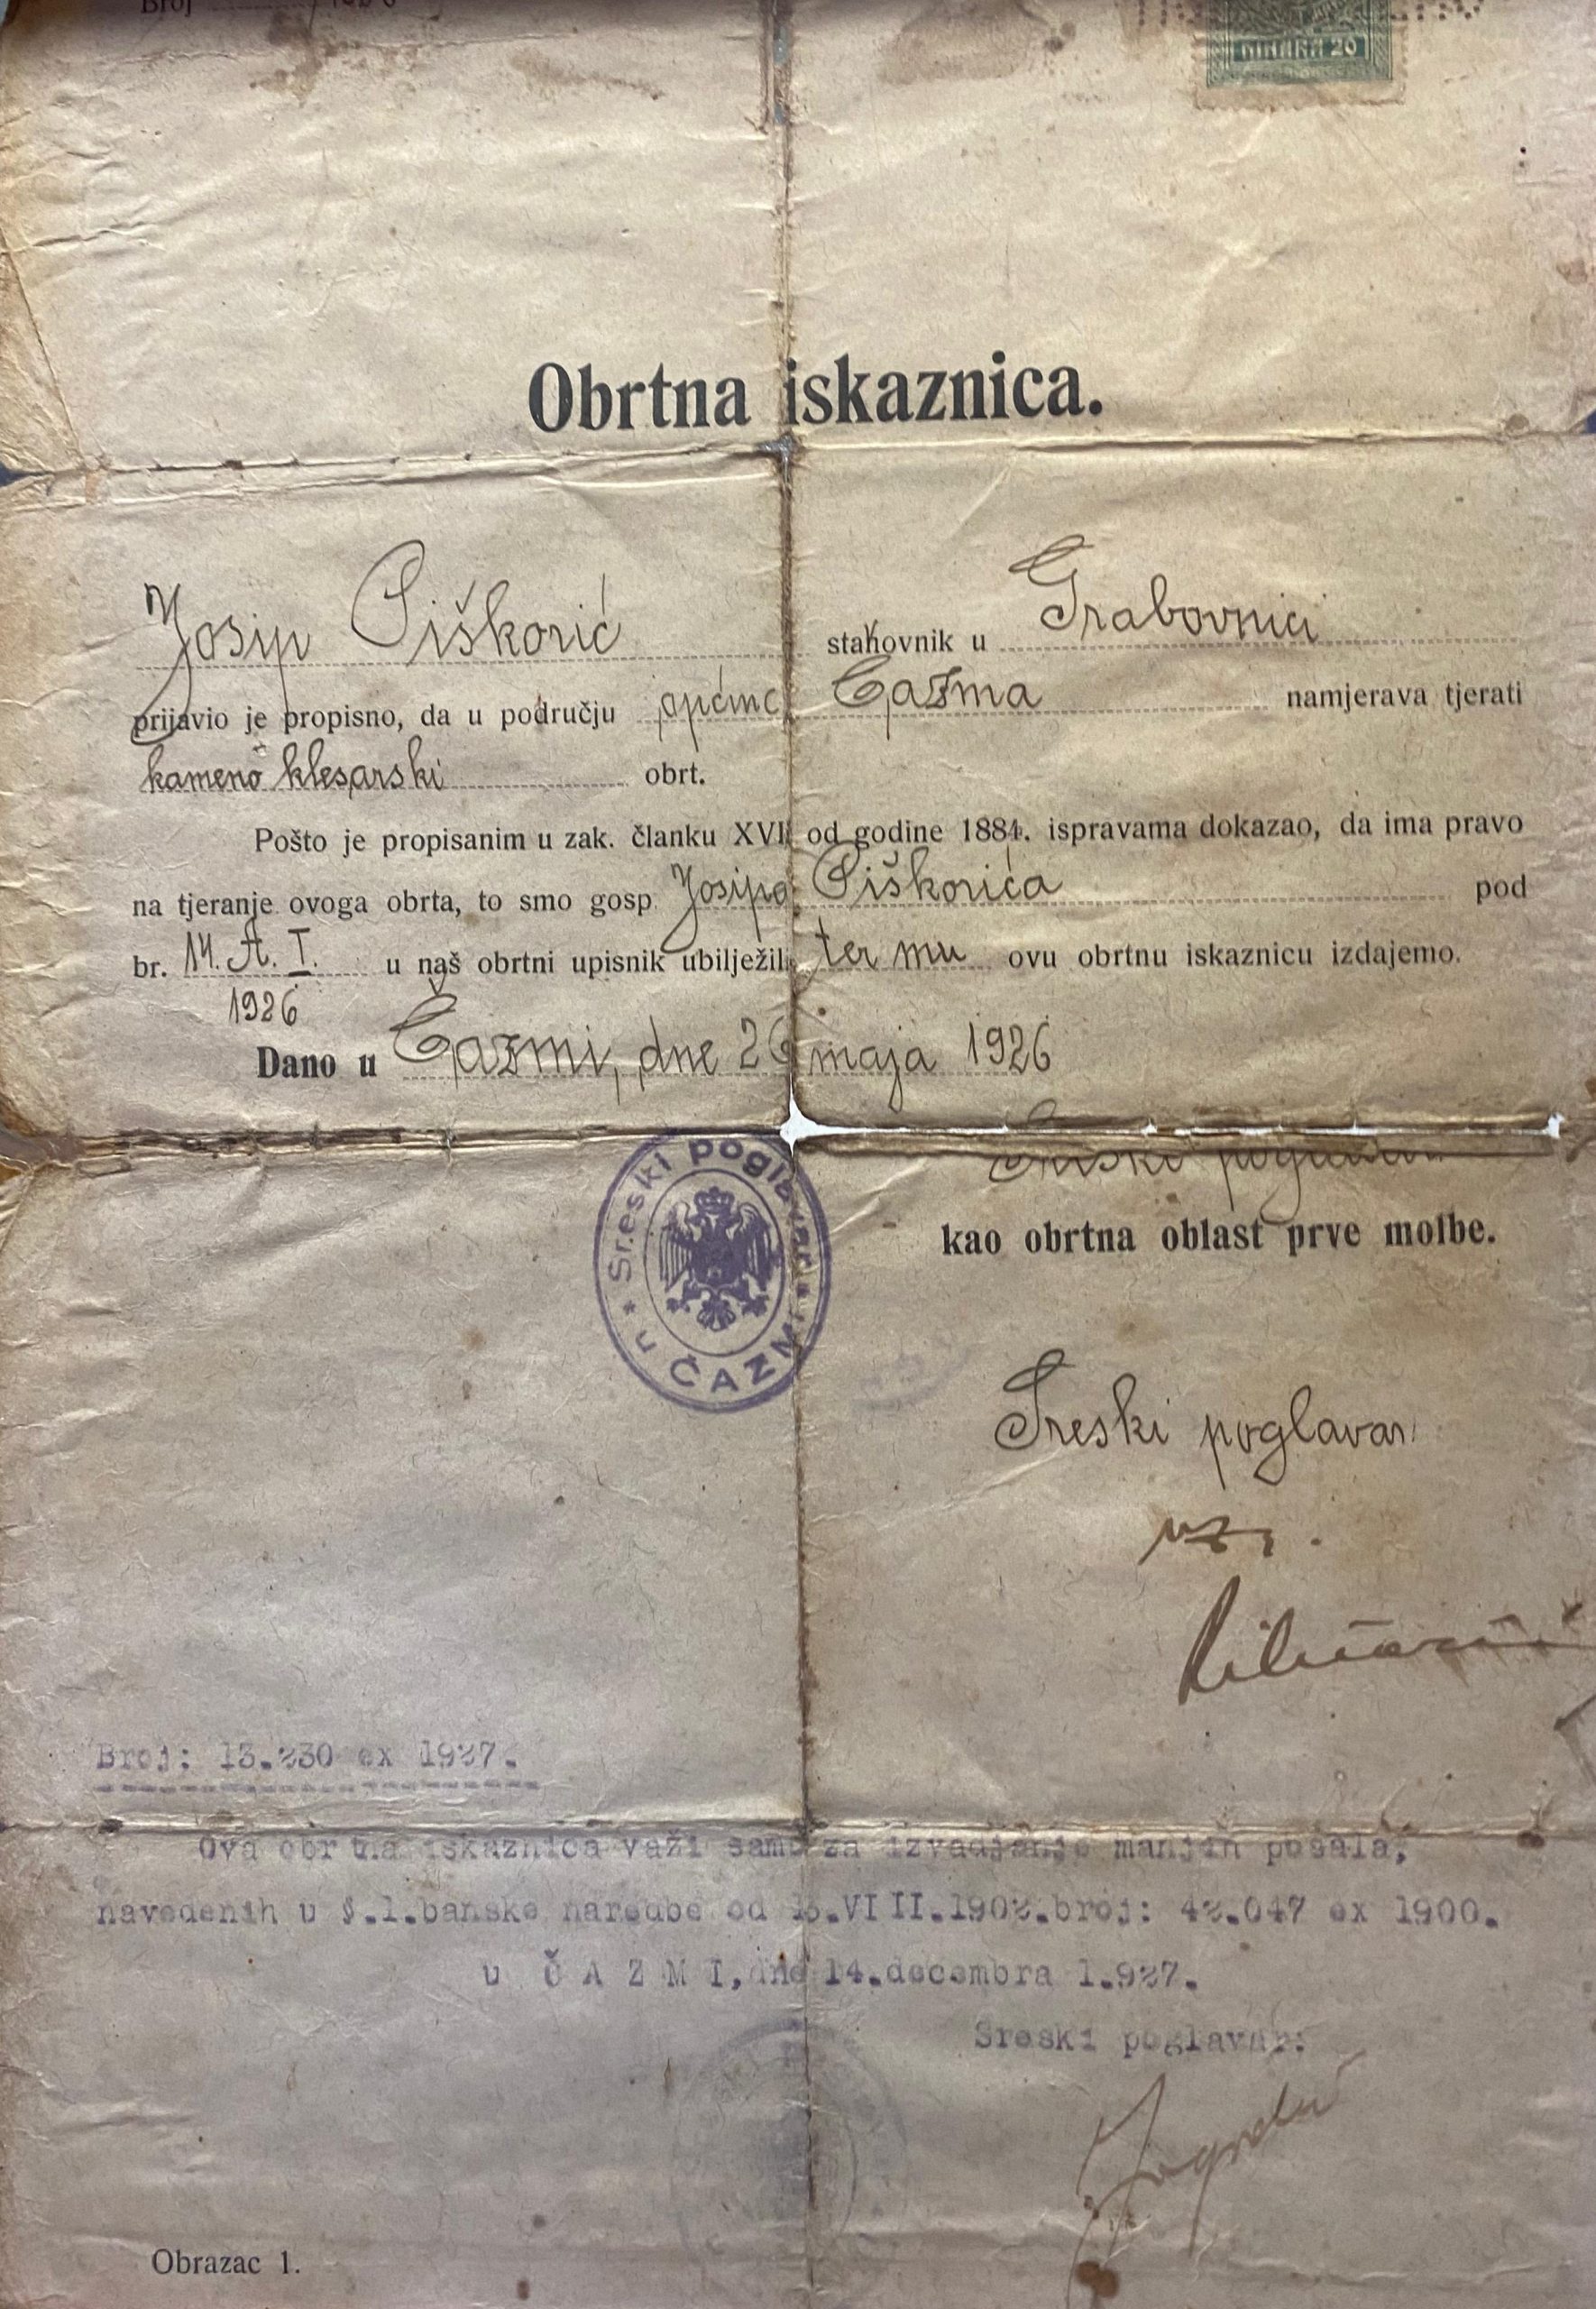 Broj
ДИНАРА 20
Obrtna iskaznica.
Josip Piškorić stanovnik u Grabovnici
prijavio je propisno, da u području općine Čazma namjerava tjerati
kameno klesarski obrt.
Pošto je propisanim u zak. članku XVII od godine 1884. ispravama dokazao, da ima pravo
na tjeranje ovoga obrta, to smo gosp. Josipa Piškorića pod
br. 14. A. I. u naš obrtni upisnik ubilježili ter mu ovu obrtnu iskaznicu izdajemo.
1926
Dano u Čazmi, dne 26 maja 1926
Sreski poglavar
kao obrtna oblast prve molbe.
Sreski poglavar u ČAZMI
Sreski poglavar
Broj: 13.230 ex 1927.
Ova obrtna iskaznica važi samo za izvadjanje manjih posala,
navedenih u §.1.banske naredbe od 13.VIII.1902.broj: 42.047 ex 1900.
u ČAZMI, dne 14.decembra 1.927.
Sreski poglavar:
Obrazac 1.